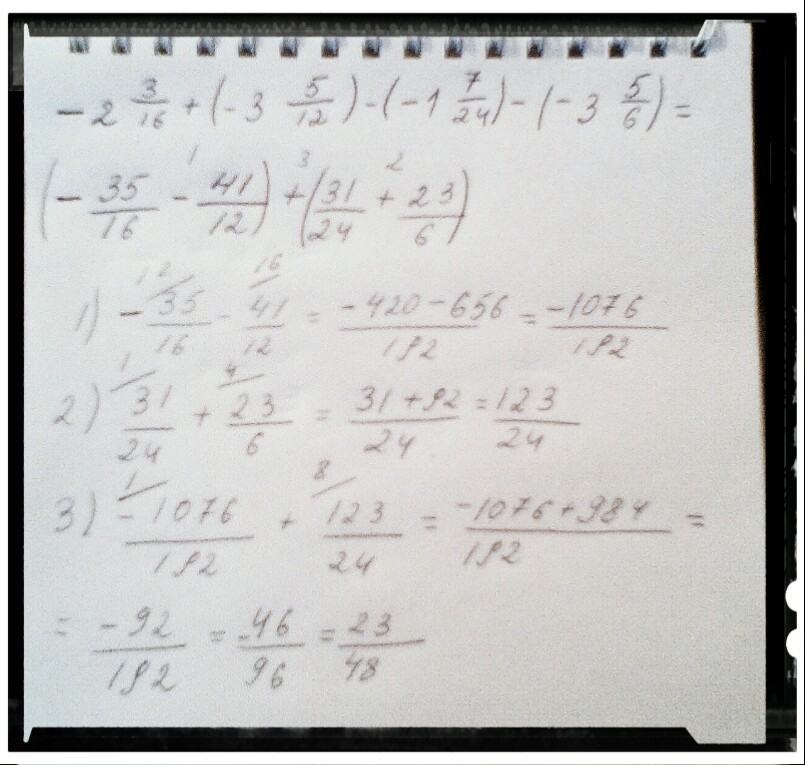 - 2 3/16 + (- 3 5/12) - (- 1 7/24) - (- 3 5/6) =
1 3 2
(- 35/16 - 41/12) + (31/24 + 23/6)
12 16
1) - 35/16 - 41/12 = -420-656/192 = -1076/192
1 4
2) 31/24 + 23/6 = 31+92/24 = 123/24
1 8
3) -1076/192 + 123/24 = -1076+984/192 =
= -92/192 = -46/96 = 23/48